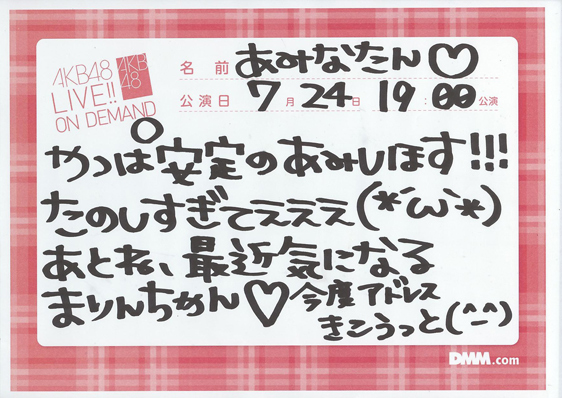 AKB48
LIVE!!
ON DEMAND
AKB
48
名前 あみなたん♡
公演日 7月24日 19:00公演
やっぱ安定のあみしほす!!!
たのしすぎてえええ(*´ω`*)
あとね、最近気になる
まりんちゃん♡今度アドレス
きこうっと(^-^)
DMM.com